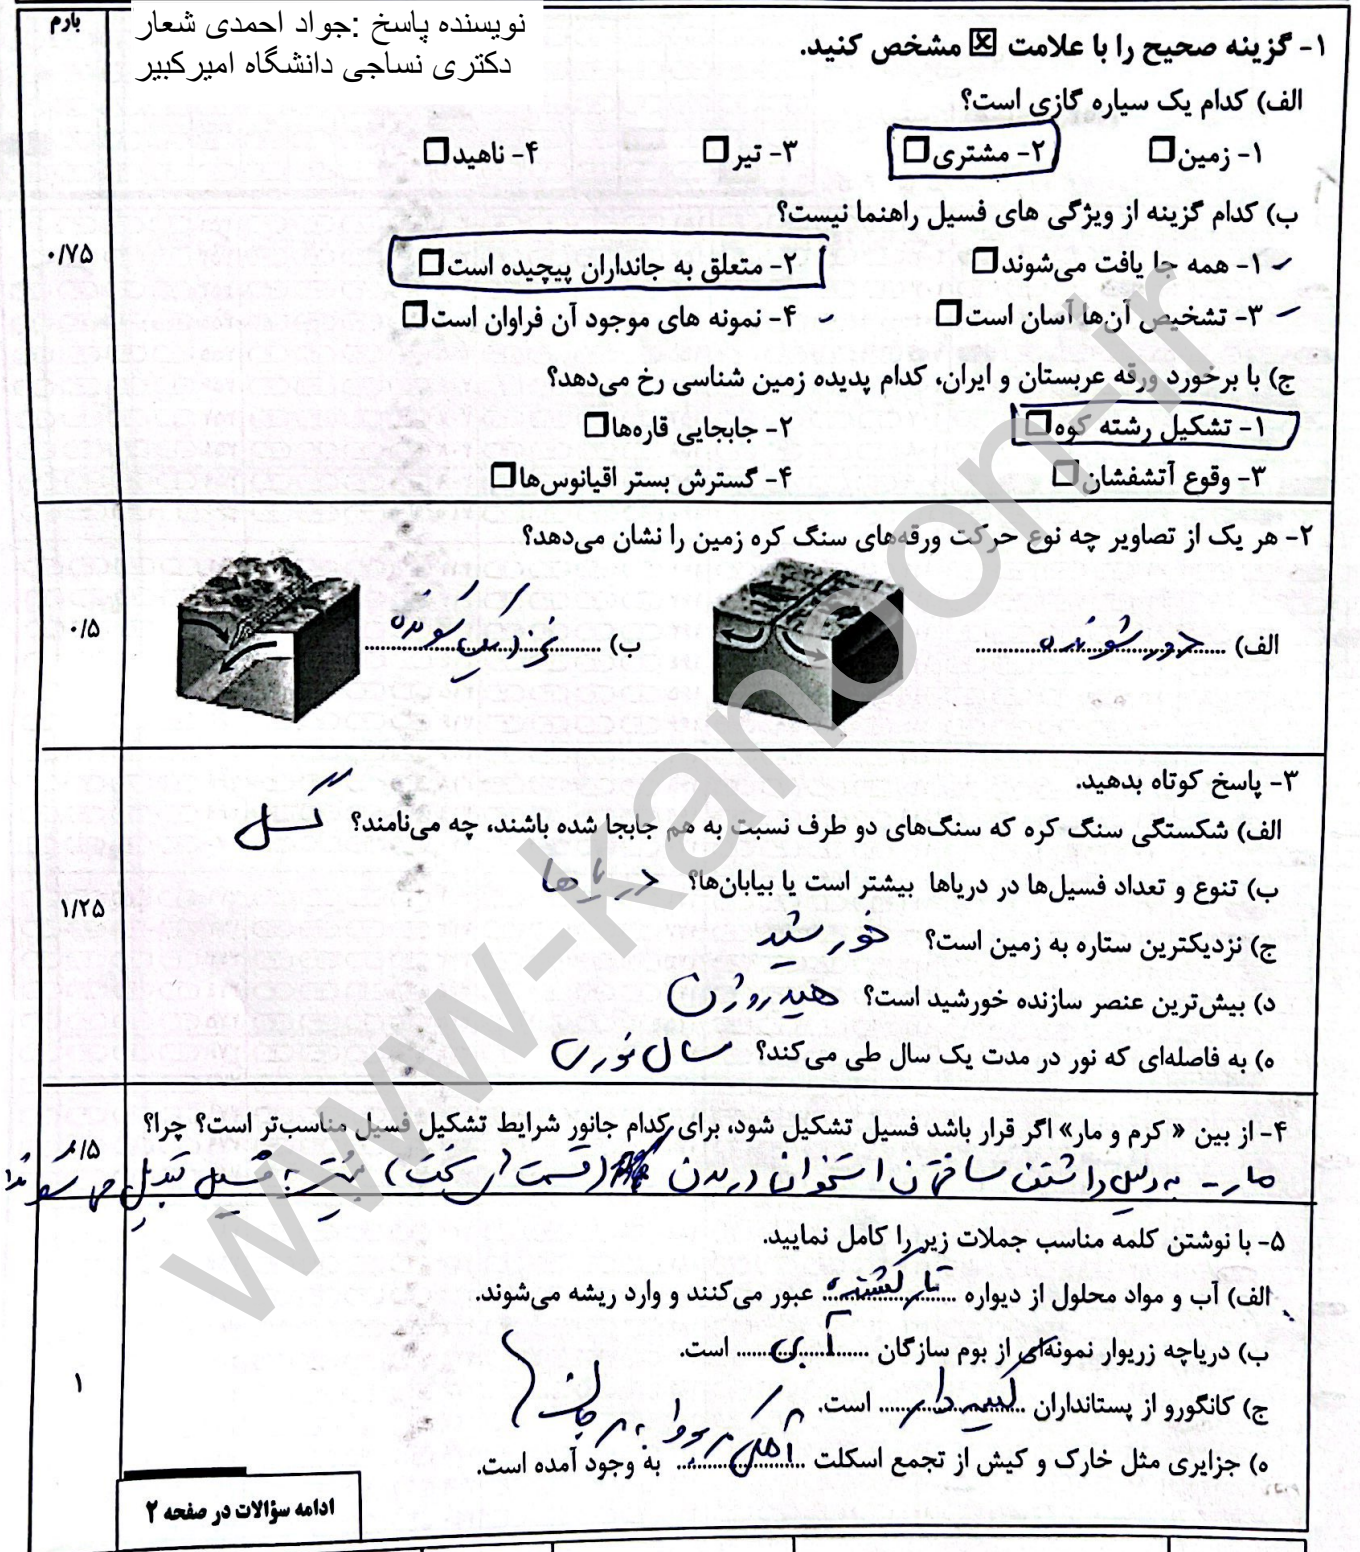 نویسنده پاسخ :جواد احمدی شعار
دکتری نساجی دانشگاه امیرکبیر
بارم
۱- گزینه صحیح را با علامت ☒ مشخص کنید.
الف) کدام یک سیاره گازی است؟
۱- زمین☐ ۲- مشتری☐ ۳- تیر☐ ۴- ناهید☐
ب) کدام گزینه از ویژگی های فسیل راهنما نیست؟
۰/۷۵
۱- همه جا یافت می‌شوند☐ ۲- متعلق به جانداران پیچیده است☐
۳- تشخیص آن‌ها آسان است☐ ۴- نمونه های موجود آن فراوان است☐
ج) با برخورد ورقه عربستان و ایران، کدام پدیده زمین شناسی رخ می‌دهد؟
۱- تشکیل رشته کوه☐ ۲- جابجایی قاره‌ها☐
۳- وقوع آتشفشان☐ ۴- گسترش بستر اقیانوس‌ها☐
۲- هر یک از تصاویر چه نوع حرکت ورقه‌های سنگ کره زمین را نشان می‌دهد؟
۰/۵
الف) دور شونده ب) نزدیک شونده
۳- پاسخ کوتاه بدهید.
الف) شکستگی سنگ کره که سنگ‌های دو طرف نسبت به هم جابجا شده باشند، چه می‌نامند؟ گسل
ب) تنوع و تعداد فسیل‌ها در دریاها بیشتر است یا بیابان‌ها؟ دریاها
۱/۲۵
ج) نزدیکترین ستاره به زمین است؟ خورشید
د) بیش‌ترین عنصر سازنده خورشید است؟ هیدروژن
ه) به فاصله‌ای که نور در مدت یک سال طی می‌کند؟ سال نوری
۴- از بین « کرم و مار» اگر قرار باشد فسیل تشکیل شود، برای کدام جانور شرایط تشکیل فسیل مناسب‌تر است؟ چرا؟
۰/۵
مار - به دلیل داشتن ساختمان استخوان در بدن (قسمت های سخت) بهتر به فسیل تبدیل می شوند
۵- با نوشتن کلمه مناسب جملات زیر را کامل نمایید.
الف) آب و مواد محلول از دیواره تار کشنده عبور می‌کنند و وارد ریشه می‌شوند.
ب) دریاچه زریوار نمونه‌ای از بوم سازگان آبی است.
۱
ج) کانگورو از پستانداران کیسه دار است.
ه) جزایری مثل خارک و کیش از تجمع اسکلت آهکی مرجان ها به وجود آمده است.
ادامه سؤالات در صفحه ۲
www-kanoon-ir